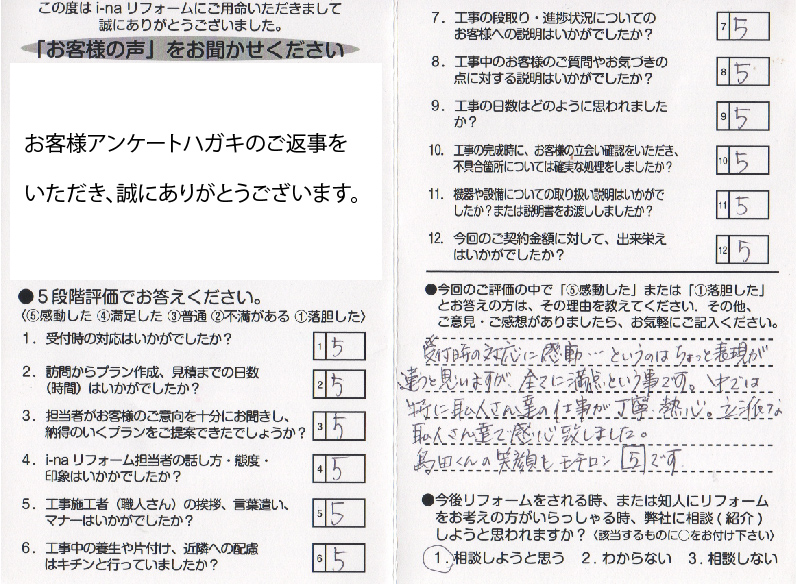 この度は i-na リフォームにご用命いただきまして
誠にありがとうございました。
「お客様の声」をお聞かせください
お客様アンケートハガキのご返事を
いただき、誠にありがとうございます。
●５段階評価でお答えください。
〈⑤感動した ④満足した ③普通 ②不満がある ①落胆した〉
1．受付時の対応はいかがでしたか？
1 5
2．訪問からプラン作成、見積までの日数
（時間）はいかがでしたか？
2 5
3．担当者がお客様のご意向を十分にお聞きし、
納得のいくプランをご提案できたでしょうか？
3 5
4．i-na リフォーム担当者の話し方・態度・
印象はいかがでしたか？
4 5
5．工事施工者（職人さん）の挨拶、言葉遣い、
マナーはいかがでしたか？
5 5
6．工事中の養生や片付け、近隣への配慮
はキチンと行っていましたか？
6 5
7．工事の段取り・進捗状況についての
お客様への説明はいかがでしたか？
7 5
8．工事中のお客様のご質問やお気づきの
点に対する説明はいかがでしたか？
8 5
9．工事の日数はどのように思われました
か？
9 5
10．工事の完成時に、お客様の立会い確認をいただき、
不具合箇所については確実な処理をしましたか？
10 5
11．機器や設備についての取り扱い説明はいかがで
したか？または説明書をお渡ししましたか？
11 5
12．今回のご契約金額に対して、出来栄え
はいかがでしたか？
12 5
●今回のご評価の中で「⑤感動した」または「①落胆した」
とお答えの方は、その理由を教えてください。その他、
ご意見・ご感想がありましたら、お気軽にご記入ください。
受付時の対応に感動…というのはちょっと表現が
違うと思いますが、全てに満点という事です。中では
特に職人さん達の仕事が丁寧・熱心。立派な
職人さん達で感心致しました。
島田くんの笑顔もモチロン 5 です
●今後リフォームをされる時、または知人にリフォーム
をお考えの方がいらっしゃる時、弊社に相談（紹介）
しようと思われますか？〈該当するものに○をお付け下さい〉
1．相談しようと思う 2．わからない 3．相談しない